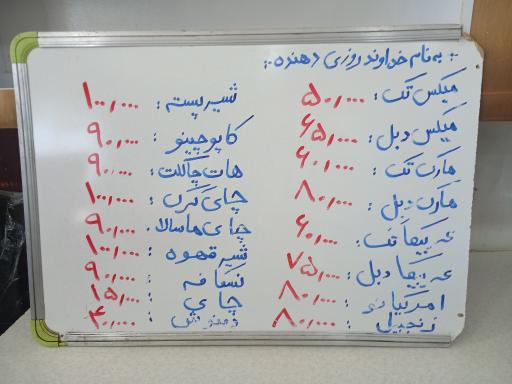 به نام خداوند روزی دهنده :
میکس تک : ۵۰,۰۰۰
میکس دبل : ۶۵,۰۰۰
هارن تک : ۶۰,۰۰۰
هارن دبل : ۸۰,۰۰۰
تک : ۶۰,۰۰۰
دبل : ۷۵,۰۰۰
امریکانو : ۸۰,۰۰۰
زنجبیل : ۸۰,۰۰۰
شیر پسته : ۱۰۰,۰۰۰
کاپوچینو : ۹۰,۰۰۰
هات چاکلت : ۹۰,۰۰۰
چای کرک : ۱۰۰,۰۰۰
چای ماسالا : ۹۰,۰۰۰
شیر قهوه : ۱۰۰,۰۰۰
نسکافه : ۹۰,۰۰۰
چای : ۱۵,۰۰۰
دمنوش : ۴۰,۰۰۰